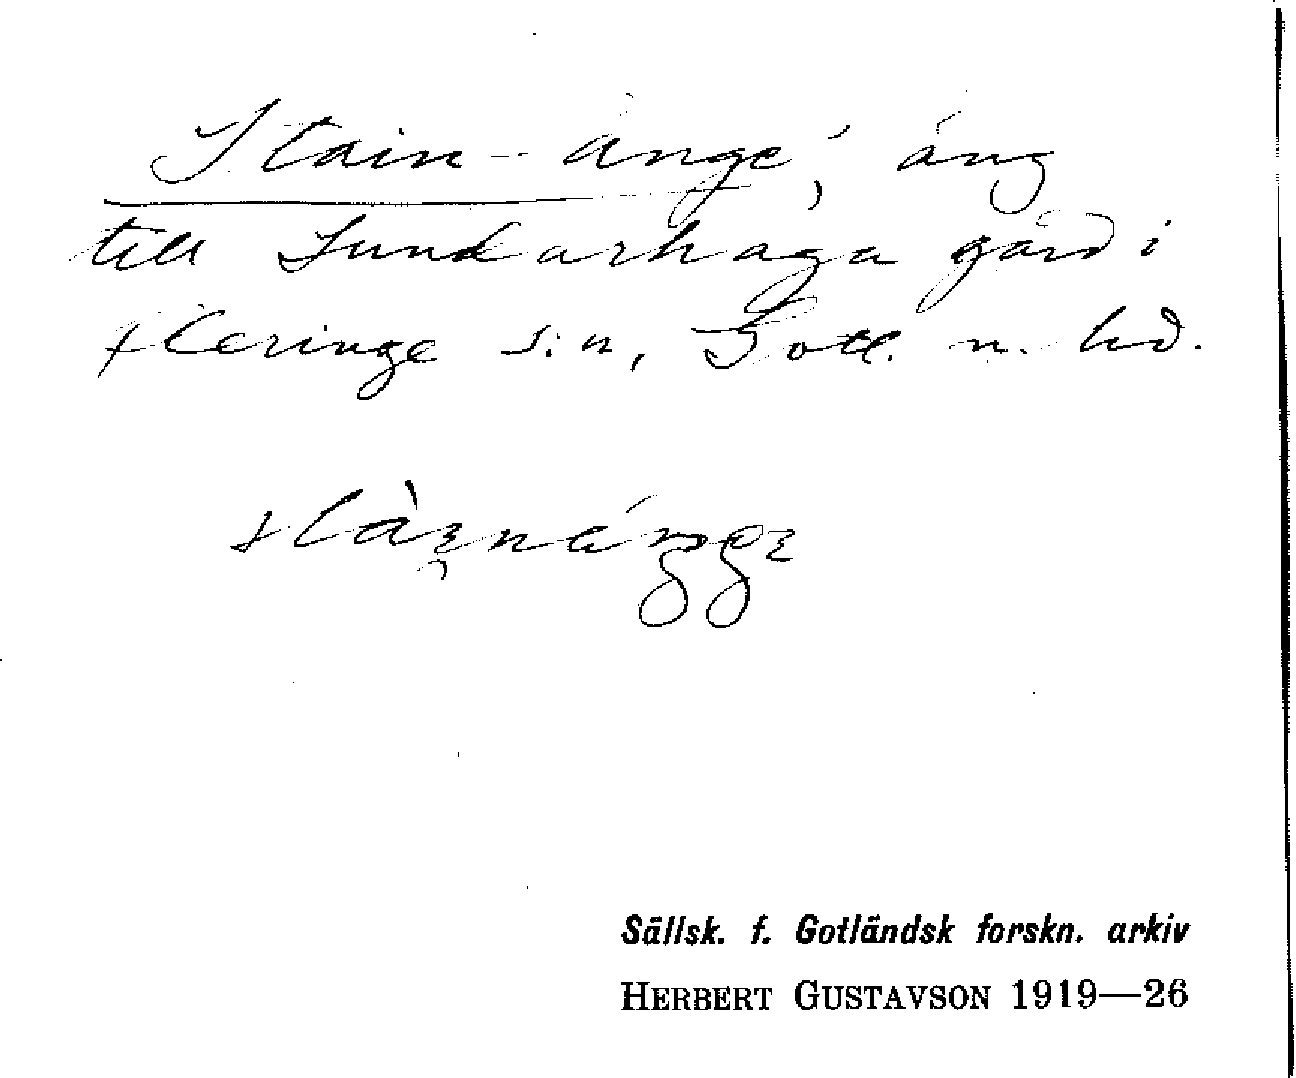 Stain-änge, äng
till Lunderhage gård i
Fleringe s:n, Gotl. n. hd.
Sällsk. f. Gotländsk forskn. arkiv
HERBERT GUSTAVSON 1919—26